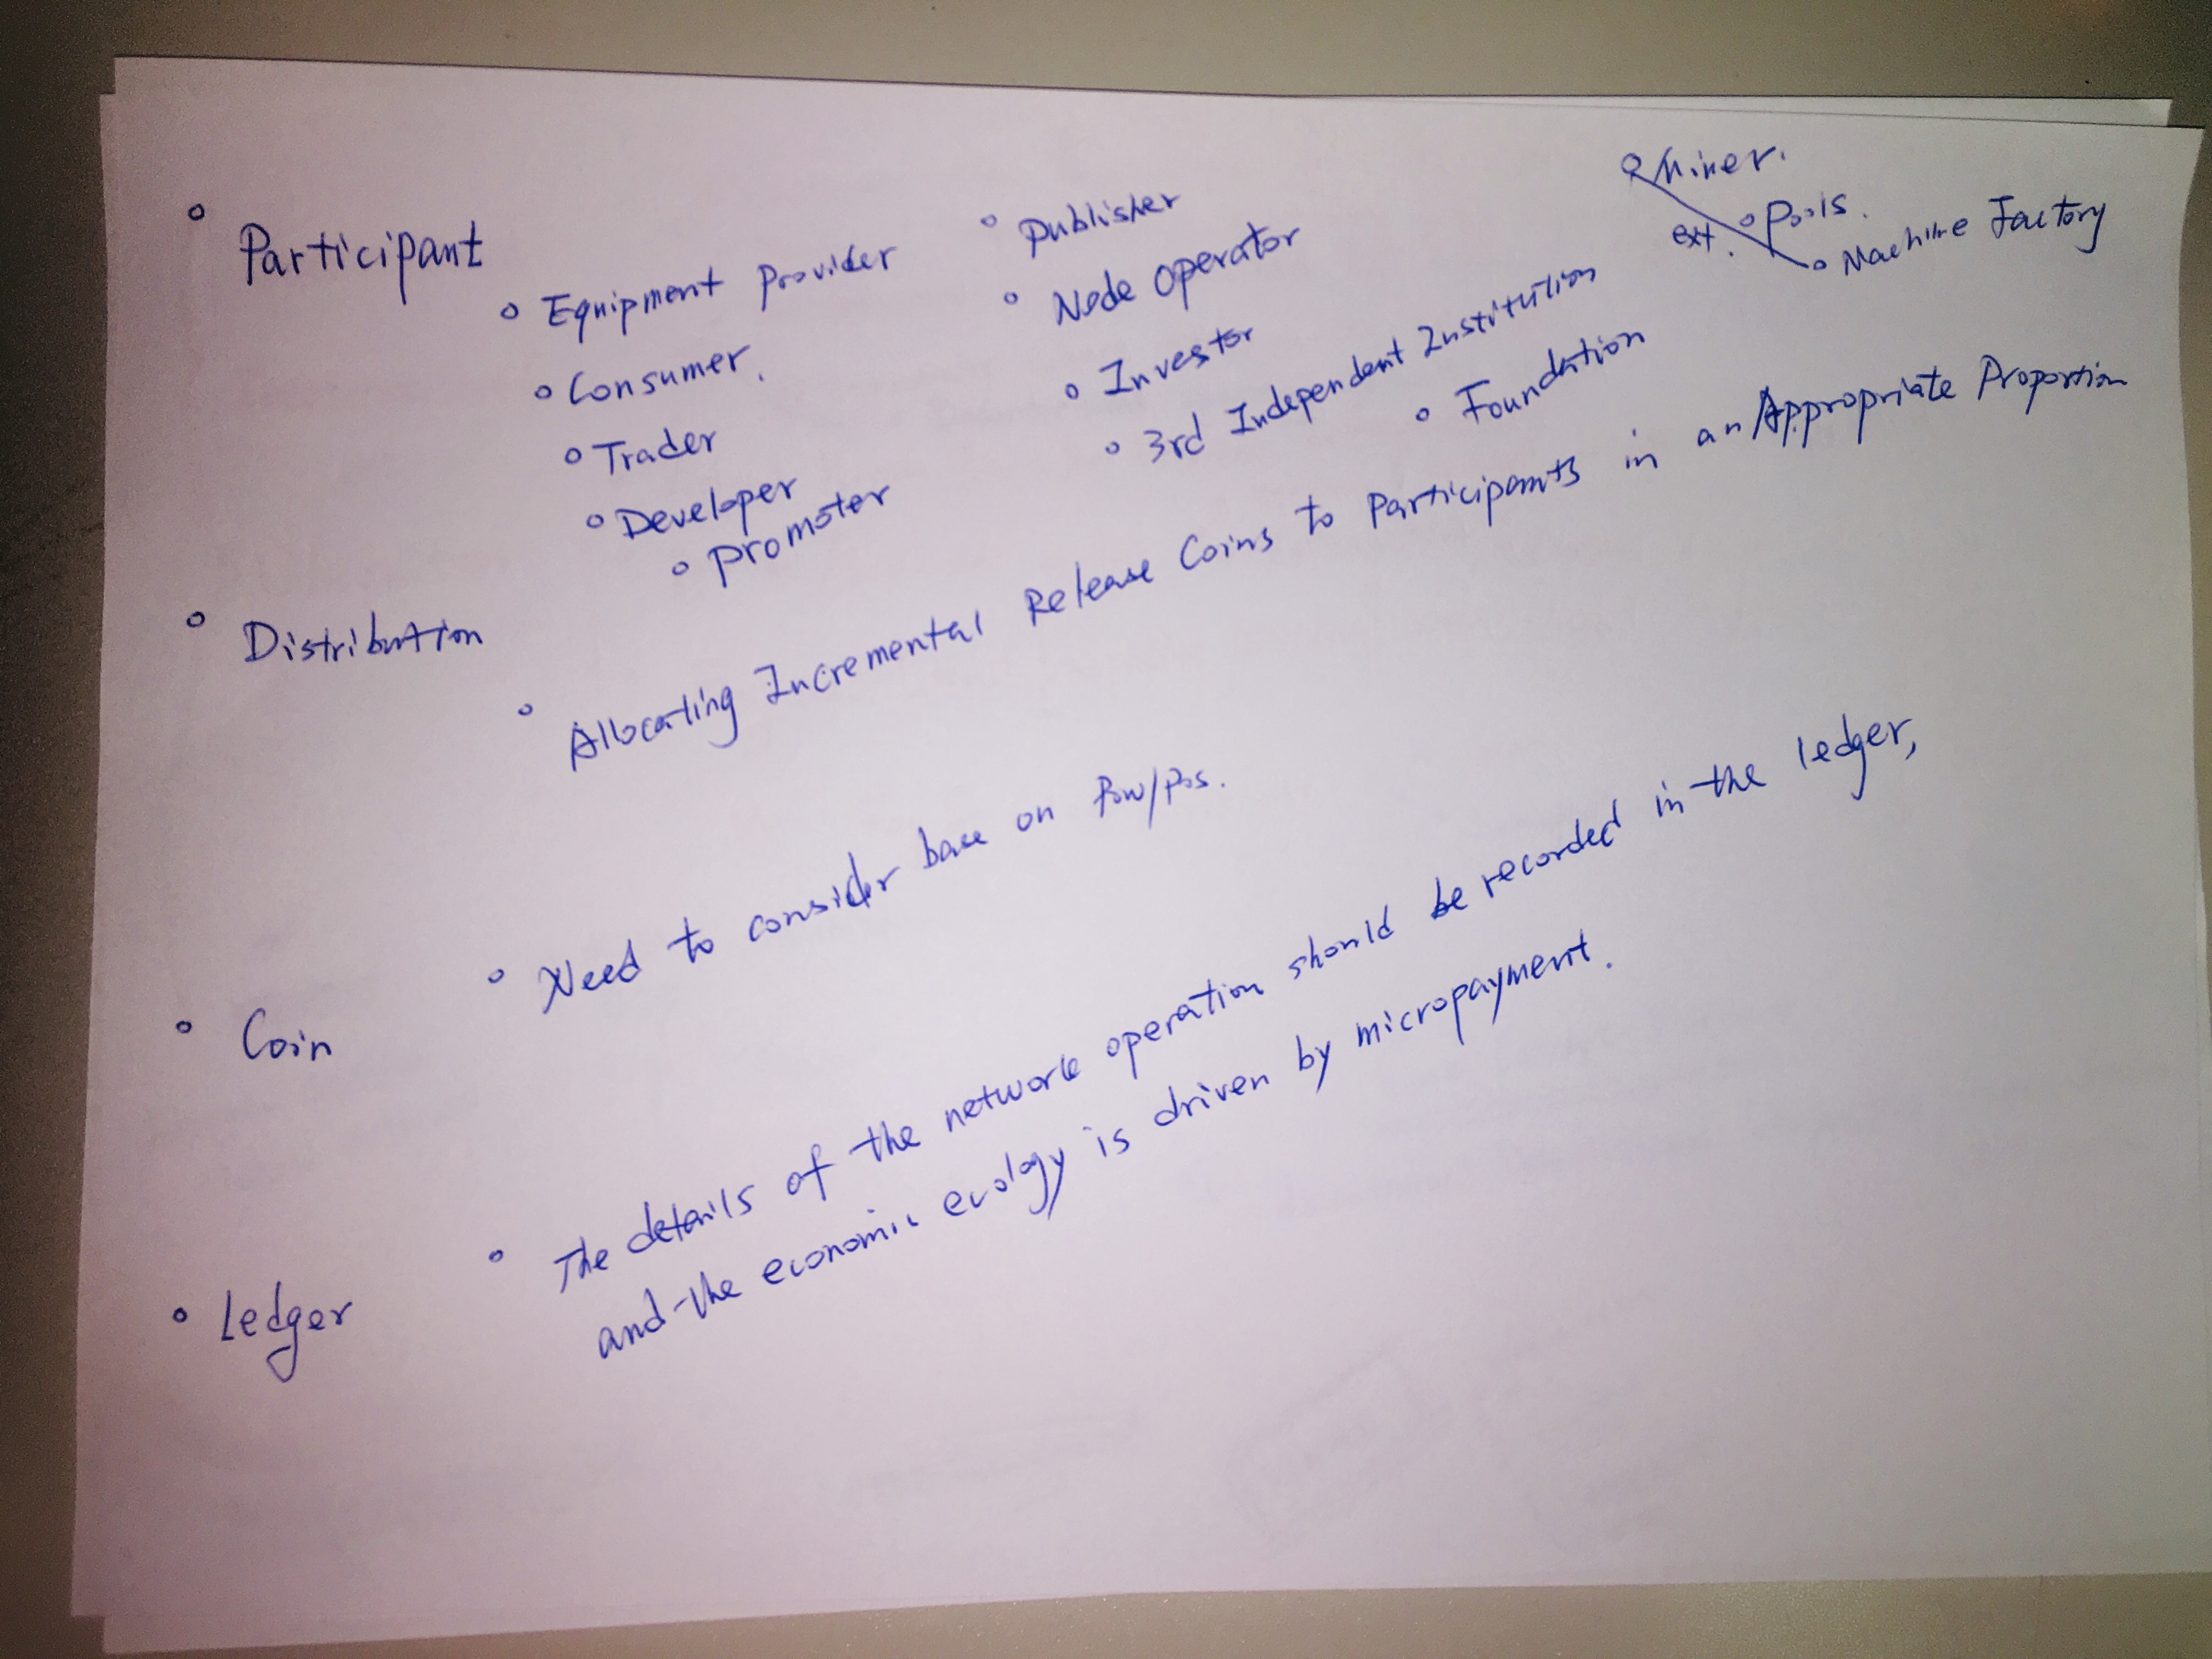 Participant
Equipment Provider
Consumer.
Trader
Developer
Promoter
Publisher
Node Operator
Investor
3rd Independent Institution
Foundation
Miner.
ext. Pools.
Machine Factory
Distribution
Allocating Incremental Release Coins to Participants in an Appropriate Proportion
Coin
Need to consider base on Pow/Pos.
Ledger
The details of the network operation should be recorded in the ledger,
and the economic ecology is driven by micropayment.